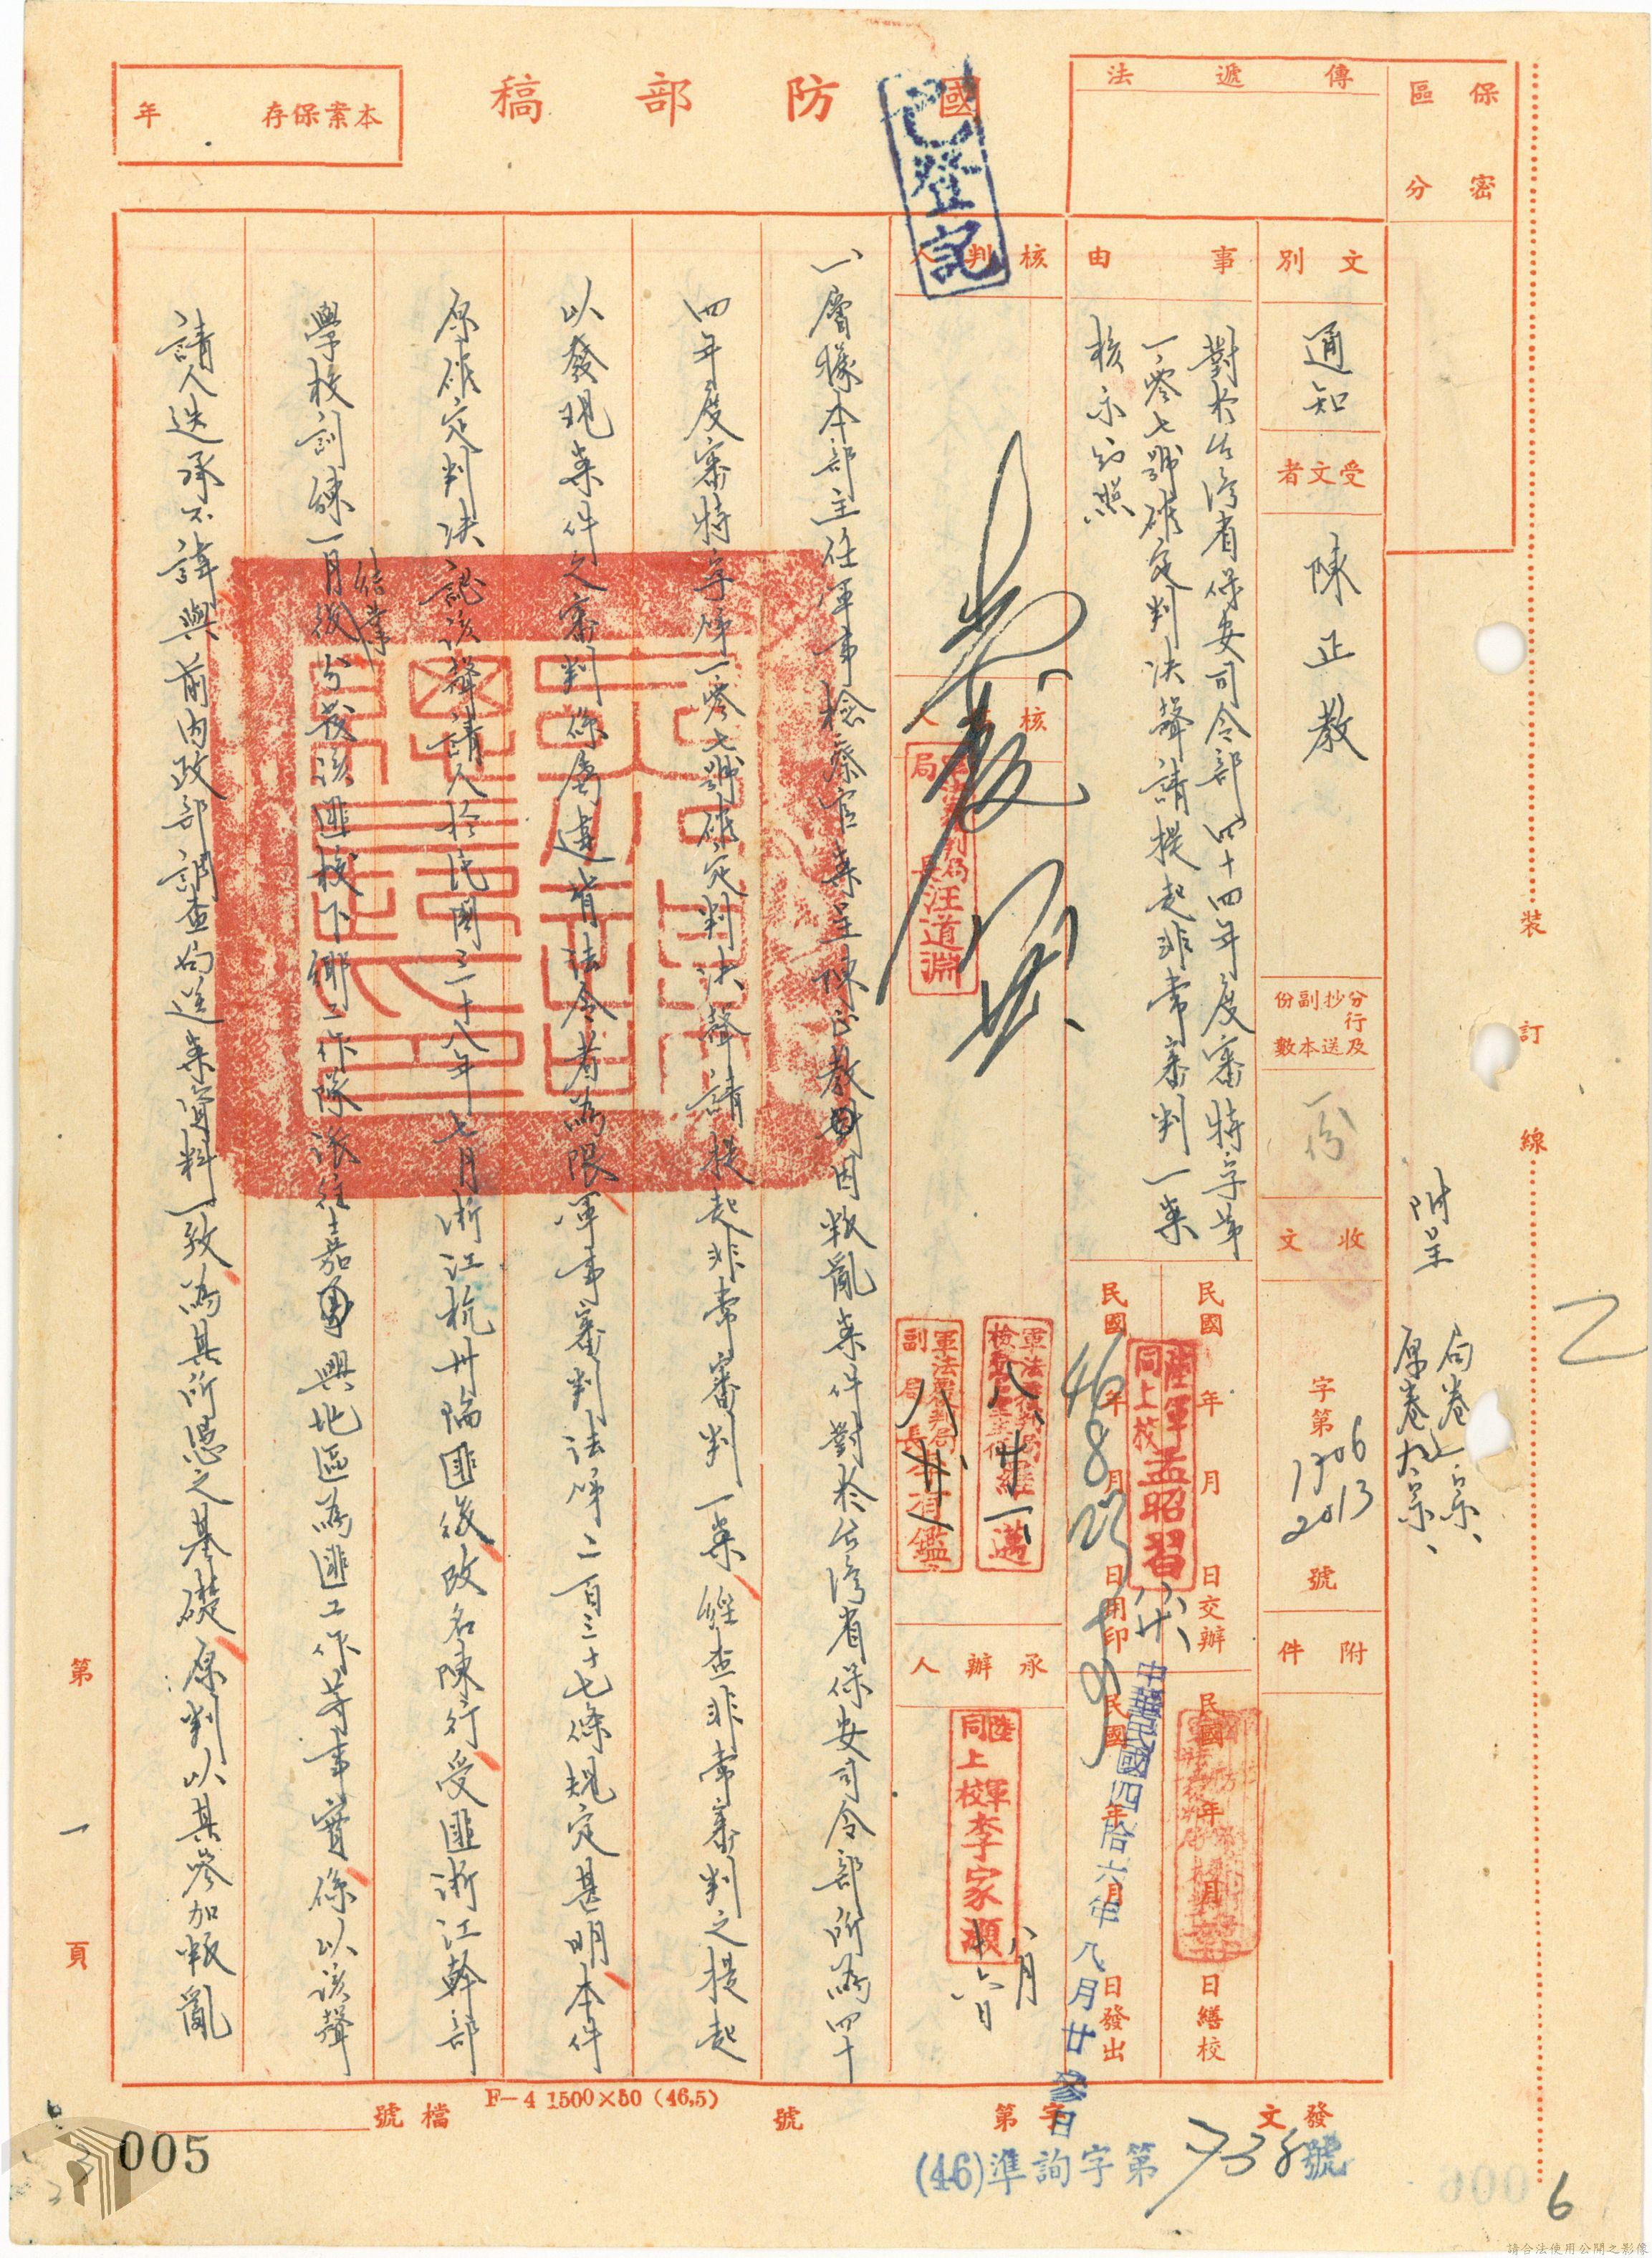 保密
區分
傳遞法
國防部稿
本案保存　年
已登記
文別
通知
受文者
陳正教
分行及抄送副本份數
一份
收文
字第
1706
2013
號
附件
事由
對於台灣省保安司令部四十四年度審特字第
一零七號確定判決聲請提起非常審判一案
核示知照
民國　年　月　日交辦
民國46年8月23日用印
民國　年　月　日繕校
民國　年　月　日發出
陸軍同上校孟昭習
中華民國四拾六年八月廿參日
核判人
核人
局長汪道淵
八、廿一、
承辦人
陸軍同上校李家灝
八月十六日
一、層據本部主任軍事檢察官案呈陳正教因叛亂案件對於台灣省保安司令部所為四十
四年度審特字第一零七號確定判決聲請提起非常審判一案經查非常審判之提起
以發現案件之審判係屬違背法令者為限軍事審判法第二百三十七條規定甚明本件
原確定判決認該聲請人於民國三十八年七月浙江杭州陷匪後改名陳行受匪浙江幹部
學校訓練一月結業後分發該匪校下鄉工作隊派往嘉興地區為匪工作等事實係以該聲
請人迭承不諱與前內政部調查局送案資料一致為其所憑之基礎原判以其參加叛亂
裝
訂
線
附呈　局卷一宗、
原卷六宗、
第一頁
檔號
F－4 1500×50 (46,5)
發文　字第　號
(46)準詢字第738號
005
006
6
請合法使用公開之影像